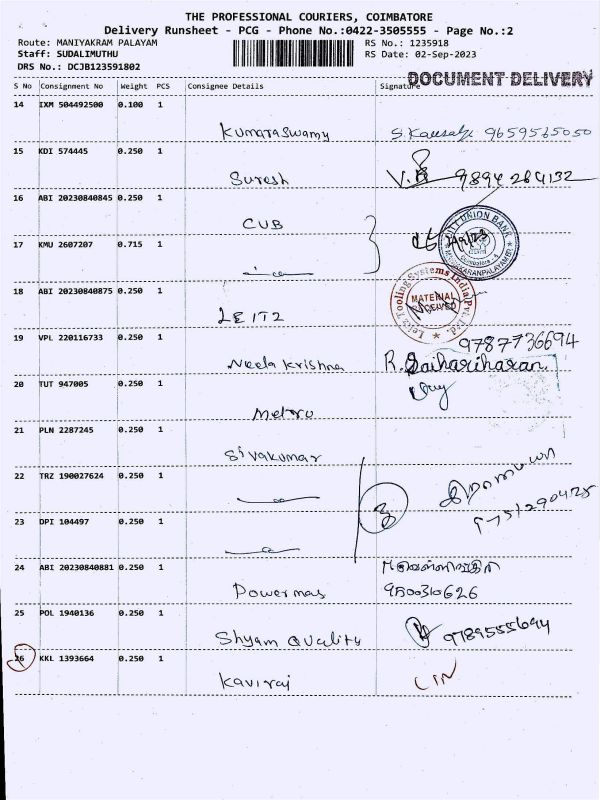 THE PROFESSIONAL COURIERS, COIMBATORE
Delivery Runsheet - PCG - Phone No.:0422-3505555 - Page No.:2
Route: MANIYAKRAM PALAYAM
RS No.: 1235918
Staff: SUDALIMUTHU
RS Date: 02-Sep-2023
DRS No.: DCJB123591802
DOCUMENT DELIVERY
S No Consignment No Weight PCS Consignee Details Signature
14 IXM 504492500 0.100 1
Kumaraswamy 9659565050
15 KDI 574445 0.250 1
Suresh 9894264132
16 ABI 20230840845 0.250 1
CUB
17 KMU 2607207 0.715 1
18 ABI 20230840875 0.250 1
MATERIAL RECEIVED
Leitz Tooling Systems India Pvt. Ltd.
LEITZ
19 VPL 220116733 0.250 1
9787736694
Neela Krishna R. Saihariharan
20 TUT 947005 0.250 1
Metro
21 PLN 2287245 0.250 1
Sivakumar
22 TRZ 190027624 0.250 1
23 DPI 104497 0.250 1
24 ABI 20230840881 0.250 1
Powermas 9500310626
25 POL 1940136 0.250 1
Shyam Quality 9789555694
26 KKL 1393664 0.250 1
Kaviraj